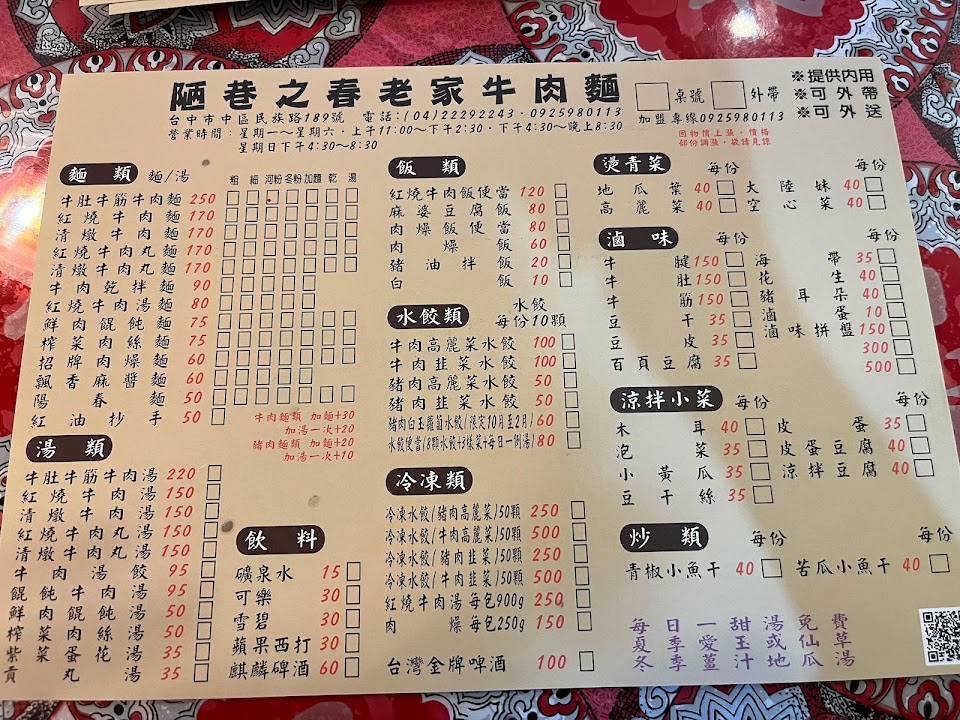 陋巷之春老家牛肉麵
台中市中區民族路189號 電話:(04)22292243·0925980113
營業時間:星期一~星期六·上午11:00~下午2:30·下午4:30~晚上8:30
星期日下午4:30~8:30
桌號 外帶
加盟專線0925980113
因物價上漲·價格
部份調漲·敬請見諒
※提供內用
※可外帶
※可外送
麵類 麵/湯
粗 細 河粉 冬粉 加麵 乾 湯
牛肚牛筋牛肉麵 250
紅燒牛肉麵 170
清燉牛肉麵 170
紅燒牛肉丸麵 170
清燉牛肉丸麵 170
牛肉乾拌麵 90
紅燒牛肉湯麵 80
鮮肉餛飩麵 75
榨菜肉絲麵 75
招牌肉燥麵 60
飄香麻醬麵 60
陽春麵 50
紅油抄手 50
牛肉麵類 加麵+30
加湯一次+20
豬肉麵類 加麵+20
加湯一次+10
湯類
牛肚牛筋牛肉湯 220
紅燒牛肉湯 150
清燉牛肉湯 150
紅燒牛肉丸湯 150
清燉牛肉丸湯 150
牛肉湯餃 95
餛飩牛肉湯 95
鮮肉餛飩湯 50
榨菜肉絲湯 50
紫菜蛋花湯 35
貢丸湯 35
飲料
礦泉水 15
可樂 30
雪碧 30
蘋果西打 30
麒麟啤酒 60
飯類
紅燒牛肉飯便當 120
麻婆豆腐飯 80
肉燥飯便當 80
肉燥飯 60
豬油拌飯 20
白飯 10
水餃類 水餃
每份10顆
牛肉高麗菜水餃 100
牛肉韭菜水餃 100
豬肉高麗菜水餃 50
豬肉韭菜水餃 50
豬肉白玉蘿蔔水餃/限定10月至2月/ 60
水餃便當/8顆水餃+3樣菜+每日一例湯/ 80
冷凍類
冷凍水餃/豬肉高麗菜/50顆 250
冷凍水餃/牛肉高麗菜/50顆 500
冷凍水餃/豬肉韭菜/50顆 250
冷凍水餃/牛肉韭菜/50顆 500
紅燒牛肉湯 每包900g 250
肉燥 每包250g 150
台灣金牌啤酒 100
燙青菜 每份 每份
地瓜葉 40 大陸妹 40
高麗菜 40 空心菜 40
滷味 每份 每份
牛腱 150 海帶 35
牛肚 150 花生 40
牛筋 150 豬耳朵 40
豆干 35 滷蛋 10
豆皮 35 滷味拼盤 150
百頁豆腐 35 300
500
涼拌小菜 每份 每份
木耳 40 皮蛋 35
泡菜 35 皮蛋豆腐 40
小黃瓜 35 涼拌豆腐 40
豆干絲 35
炒類 每份 每份
青椒小魚干 40 苦瓜小魚干 40
每日一甜湯免費
夏季愛玉或仙草
冬季薑汁地瓜湯